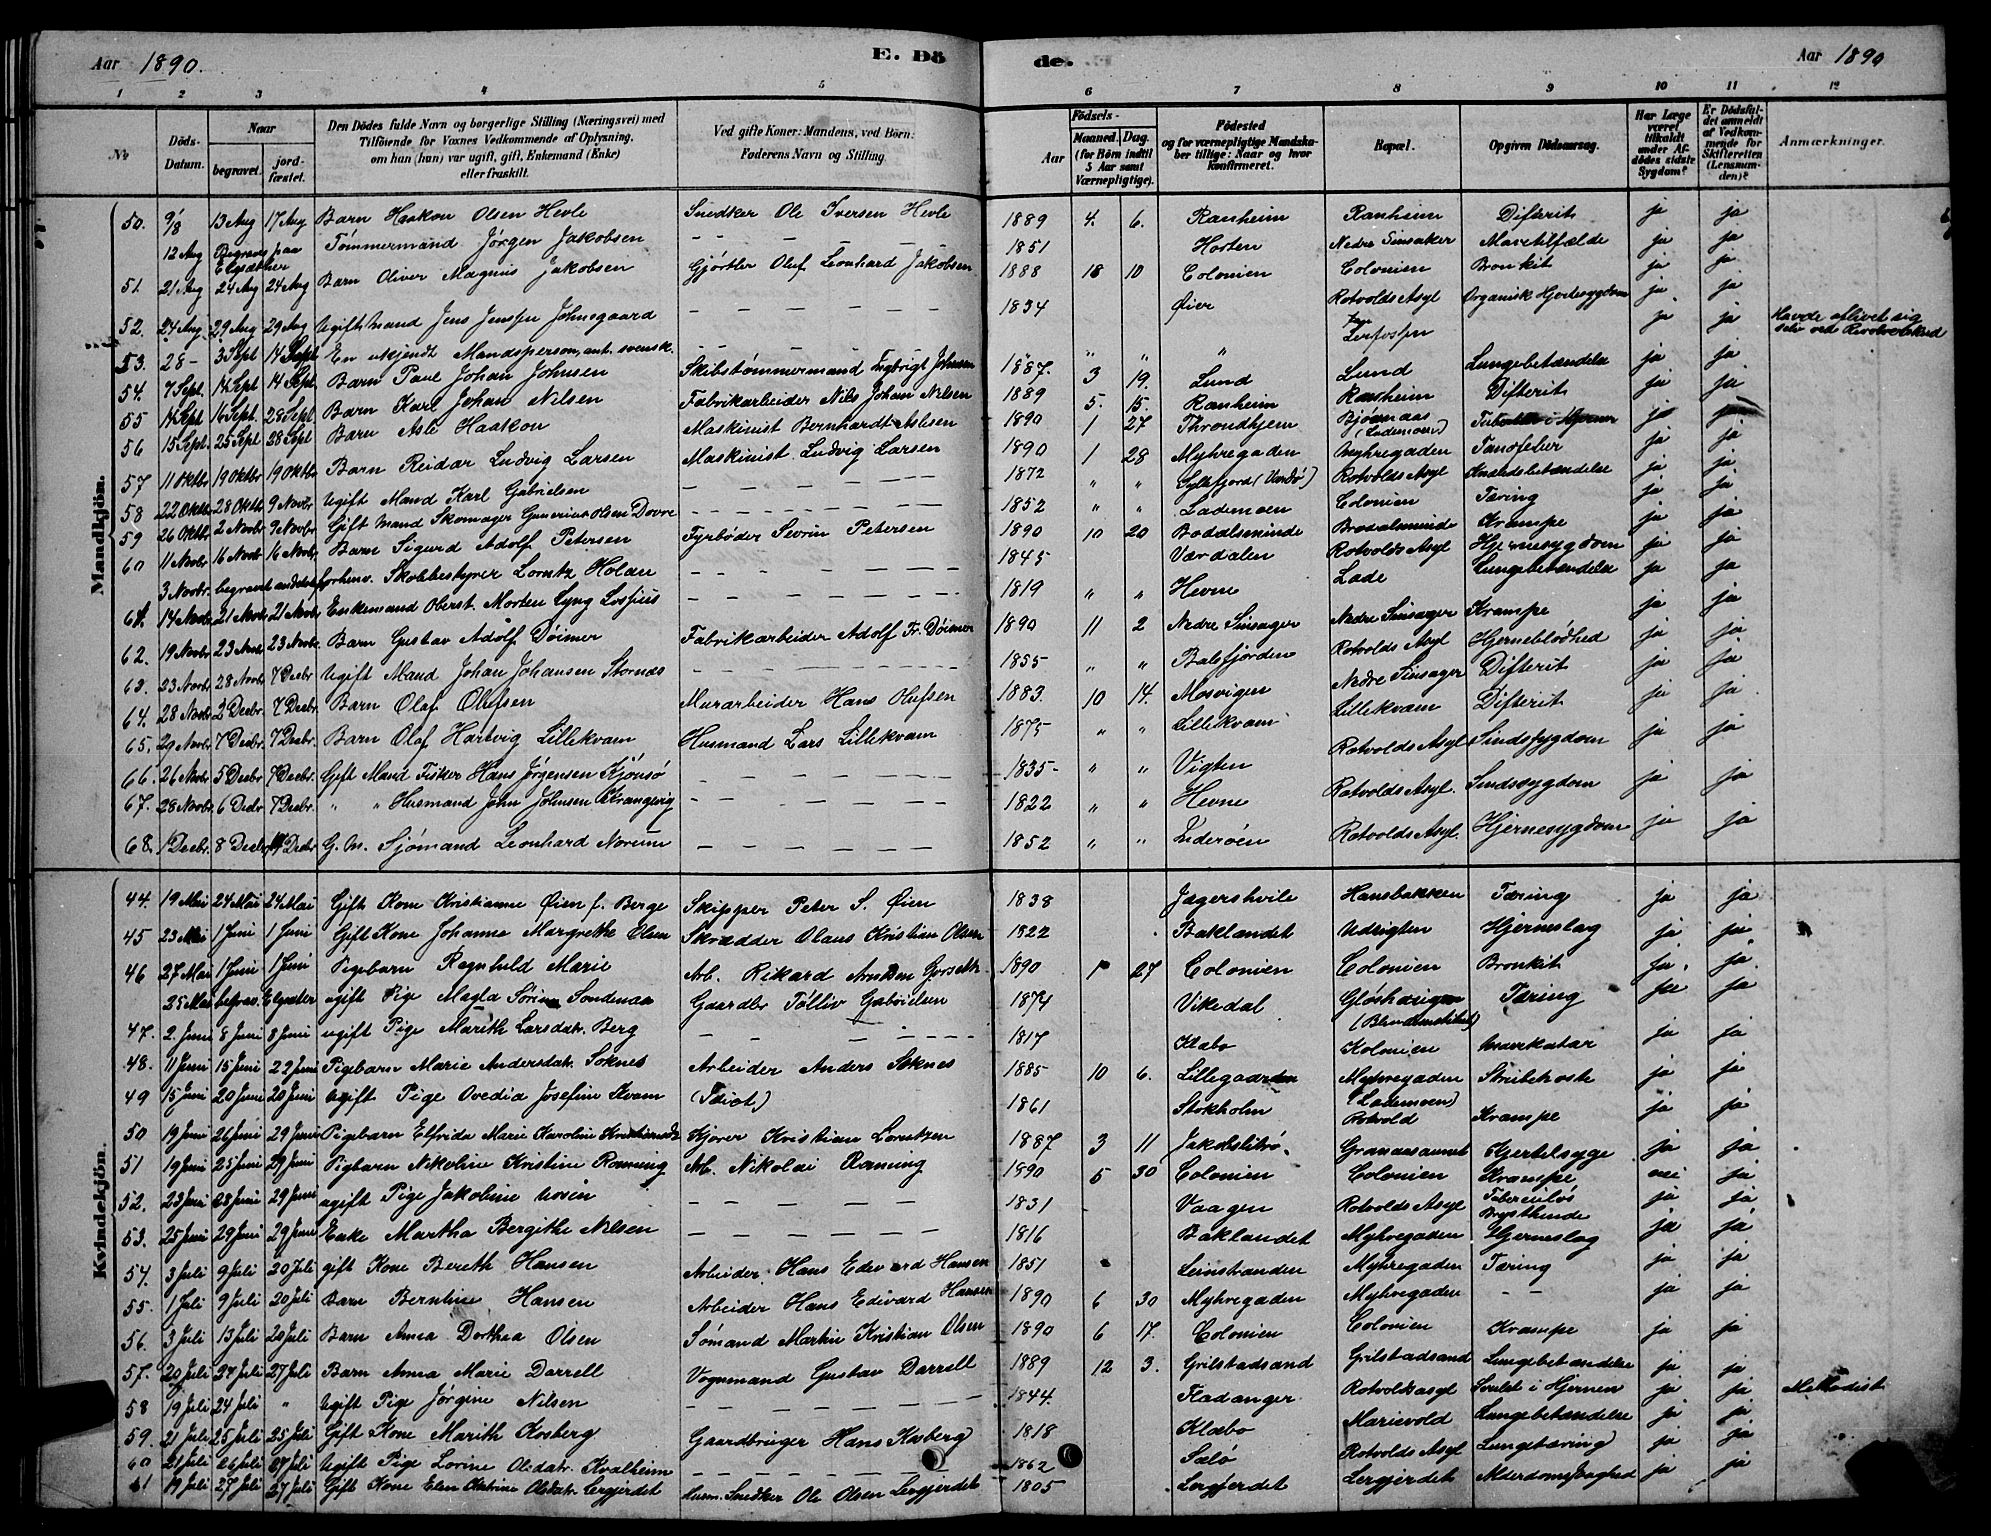 Aar 1890.
E. Dö
de.
Aar 1890
1 2 3 4 5 6 7 8 9 10 11 12
No
Döds-Datum.
Naar
begravet.
jordfæstet.
Den Dödes fulde Navn og borgerlige Stilling (Næringsvei) med Tilföiende for Voxnes Vedkommende af Oplysning, om han (hun) var ugift, gift, Enkemand (Enke) eller fraskilt.
Ved gifte Koner: Mandens, ved Börn: Faderens Navn og Stilling.
Födsels-
Aar
Maaned. Dag. (for Börn indtil 5 Aar samt Værnepligtige).
Födested og for værnepligtige Mandskaber tillige: Naar og hvor konfirmeret.
Bopæl.
Opgiven Dödsaarsag.
Har Læge været tilkaldt under Afdödes sidste Sygdom?
Er Dödsfaldet anmeldt af Vedkommende for Skifteretten (Lensmanden)?
Anmærkninger.
Mandkjön.
50. 9/8 13 Aug 17 Aug Barn Haakon Olsen Hevle Snedker Ole Iversen Hevle 1889 4. 6. Ranheim Ranheim Difterit ja ja
12 Aug Begraves paa Elgsæther Tømmermand Jørgen Jakobsen 1851 Horten Nedre Sinsaker Mavetilfælde ja ja
51. 21 Aug 24 Aug 24 Aug Barn Oliver Magnus Jakobsen Gjørtler Oluf Leonhard Jakobsen 1888 18 10 Colonien Colonien Bronkit ja ja
52. 24 Aug 29 Aug 29 Aug Ugift Mand Jens Jensen Johnsgaard 1834 Øier Rotvolds Asyl Organisk Hjertesygdom ja ja
53. 28 - 3 Sept 14 Sept En ukjendt Mandsperson, ant. svensk. " " " Lerfossen ja ja Havde aflivet sig selv ved Revolverskud
54. 7 Sept. 14 Sept 14 Sept. Barn Paul Johan Johnsen Skibstømmermand Ingbrigt Johnsen 1887. 3 19. Lund Lund Lungebetændelse ja ja
55 14 Sept 16 Sept. 28 Sept Barn Karl Johan Nilsen Fabrikarbeider Nils Johan Nilsen 1889 5. 15. Ranheim Ranheim Difterit ja ja
56 15 Sept. 25 Sept 28 Sept Barn Asle Haakon Maskinist Bernhardt Aslesen 1890 1 27 Throndhjem Bjørnaas (Lademoen) ja
57 11 Oktbr 19 Oktbr 19 Oktbr Barn Reidar Ludvig Larsen Maskinist Ludvig Larsen 1890 1 28 Myhregaden Myhregaden Tandfeber ja ja
58 22 Oktbr. 28 Oktb 9 Novbr Ugift Mand Karl Gabrielsen 1872 " " Syltefjord (Vardø) Rotvolds Asyl ja ja
59 26 Oktbr. 2 Novbr 9 Novbr Gift Mand Skomager Olsen Dovre 1852 " " Lademoen Colonien Tæring ja ja
60 11 Novbr 16 Novbr 16 Novbr. Barn Sigurd Adolf Petersen Fyrbøder Sevrin Petersen 1890 10 20 Bodalsminde Brodalsminde Krampe ja ja
3 Novbr. begravet andetst. forhenv. Skolebestyrer Lorntz Holan 1845 Værdalen Rotvolds Asyl Hjernesygdom ja ja
61. 14 Novbr 21 Novbr 21 Novbr Enkemand Oberst. Morten Lyng Lossius 1819 " " Hevne Lade Lungebetændelse ja ja
62. 19 Novbr 23 Novbr 23 Novbr. Barn Gustav Adolf Döimer Fabrikarbeider Adolf Fr. Döimer 1890 11 2 Nedre Sinsager Nedre Sinsager Krampe ja ja
63. 23 Novbr. 28 Novbr 7 Decbr Ugift Mand Johan Johansen Stornæs 1855 " " Balsfjorden Rotvolds Asyl Hjerneblödhed ja ja
64. 28 Novbr 2 Decbr. 7 Decbr. Barn Olaf Olufsen Murarbeider Hans Olufsen 1883. 10 14. Mosvigen Nedre Sinsager Difterit ja ja
65. 29 Novbr. 7 Decbr. 7 Decbr. Barn Olaf Hartvig Lillekvam Husmand Lars Lillekvam 1875 " " Lillekvam Lillekvam Difterit ja ja
66. 26 Novbr 5 Decbr 7 Decbr. Gift Mand Fisker Hans Jørgensen Kjönsö 1835 " " Vigten Rotvolds Asyl Sindssygdom ja ja
67. 28 Novbr. 6 Decbr 7 Decbr. " " Husmand John Johnsen Krangevig 1822 " " Hevne Rotvolds Asyl. Sindssygdom ja ja
68. 1 Decbr. 8 Decbr. 14 Decbr. G. M. Sjømand Leonhard Norum 1852 " " Inderøen Rotvolds Asyl. Hjernesygdom ja ja
Kvindekjön.
44. 19 Mai 24 Mai 24 Mai Gift Kone Kristianne Øien f. Berge Skipper Peter S. Øien 1838 Jægershvile Hansbakken Tæring ja ja
45 23 Mai 1 Juni 1 Juni Gift Kone Johanna Margrethe Olsen Skrædder Olaus Kristian Olsen 1822 Baklandet Udsigten Hjerneslag ja ja
46 27 Mai 1 Juni 1 Juni Pigebarn Ragnhild Marie Arb. Rikard Arntsen 1890 1 27 Colonien Colonien Bronkit ja. ja
25 Mai ugift Pige Magla Sörine Sondenaa Gaardbr Tollev Gabrielsen 1874 Vikedal Gløshaugen (Blindeinstitut) Tæring ja ja
47. 2. Juni 8 Juni 8 Juni ugift Pige Marith Larsdatr. Berg 1817 Klæbo Kolonien Mavekatar ja ja
48. 11 Juni 15 Juni 22 Juni Pigebarn Marie Andersdatr. Soknes Arbeider Anders Soknes 1885 10 6. Lillegaarden Myhregaden (Lademoen) Strubehoste ja ja
49 15 Juni 20 Juni 20 Juni Ugift Pige Ovedia Josefine Kvam (Idiot) 1861 Stokholm Rotvold Krampe ja ja
50 19 Juni 26 Juni 29 Juni Pigebarn Elfrida Marie Karoline Kjører Kristian Lorntzen 1887 3 11 Jakobslitrø. Granaasaunet Kjertelsyge ja ja
51 19 Juni 25 Juni 29 Juni Pigbarn Nikoline Kristine Rønning Arb. Nikolai Rønning 1890 5 30 Colonien Colonien Krampe nei ja
52. 23 Juni 28 Juni 29 Juni ugift Pige Jakoline 1831 Vaagen Rotvolds Asyl Tuberculøs Brysthinde ja ja
53. 25 Juni 29 Juni 29 Juni Enke Martha Bergithe Nilsen 1816 Baklandet Myhregaden Hjerneslag ja ja
54. 3 Juli 9 Juli 20 Juli gift Kone Bereth Hansen Arbeider, Hans Edevard Hansen 1851 Leinstranden Myhregaden Tæring ja ja
55. 1 Juli 9 Juli 20 Juli Barn Berntine Hansen Arbeider Hans Edivard Hansen 1890 6 30 Myhregaden Myhregaden - - ja ja
56. 3 Juli 13 Juli 20 Juli Barn Anna Dorthea Olsen Sømand Martin Kristian Olsen 1890 6 17. Colonien Colonien Krampe ja ja
57. 20 Juli 27 Juli 27 Juli Barn Anna Marie Darrell Vognmand Gustav Darrell 1889 12 3. Grilstadsand Grilstadsand Lungebetændelse ja ja
58 19 Juli 24 Juli " Ugift Pige Jørgine Nilsen 1844. Fladanger Rotvoldasyl Svulst i Hjernen ja ja Methodist
59. 21 Juli 25 Juli 25 Juli Gift Kone Marith Kosberg Gaardbruger Hans Kosberg 1818 Klæbo Marievold Lungebetændelse ja ja
60 21 Juli 26 Juli 27 Juli Ugift Pige Lorine Olsdatr. Kvalheim 1862 Sælø Rotvolds Asyl Lungetæring ja ja
61 19 Juli 27 Juli 27 Juli Gift Kone Elen Katrine Olsdatr. Lergjerdet Husm. Snedker Ole Olsen Lergjerdet 1805 Lergjerdet Lergjerdet Alderdomssvaghed ja ja